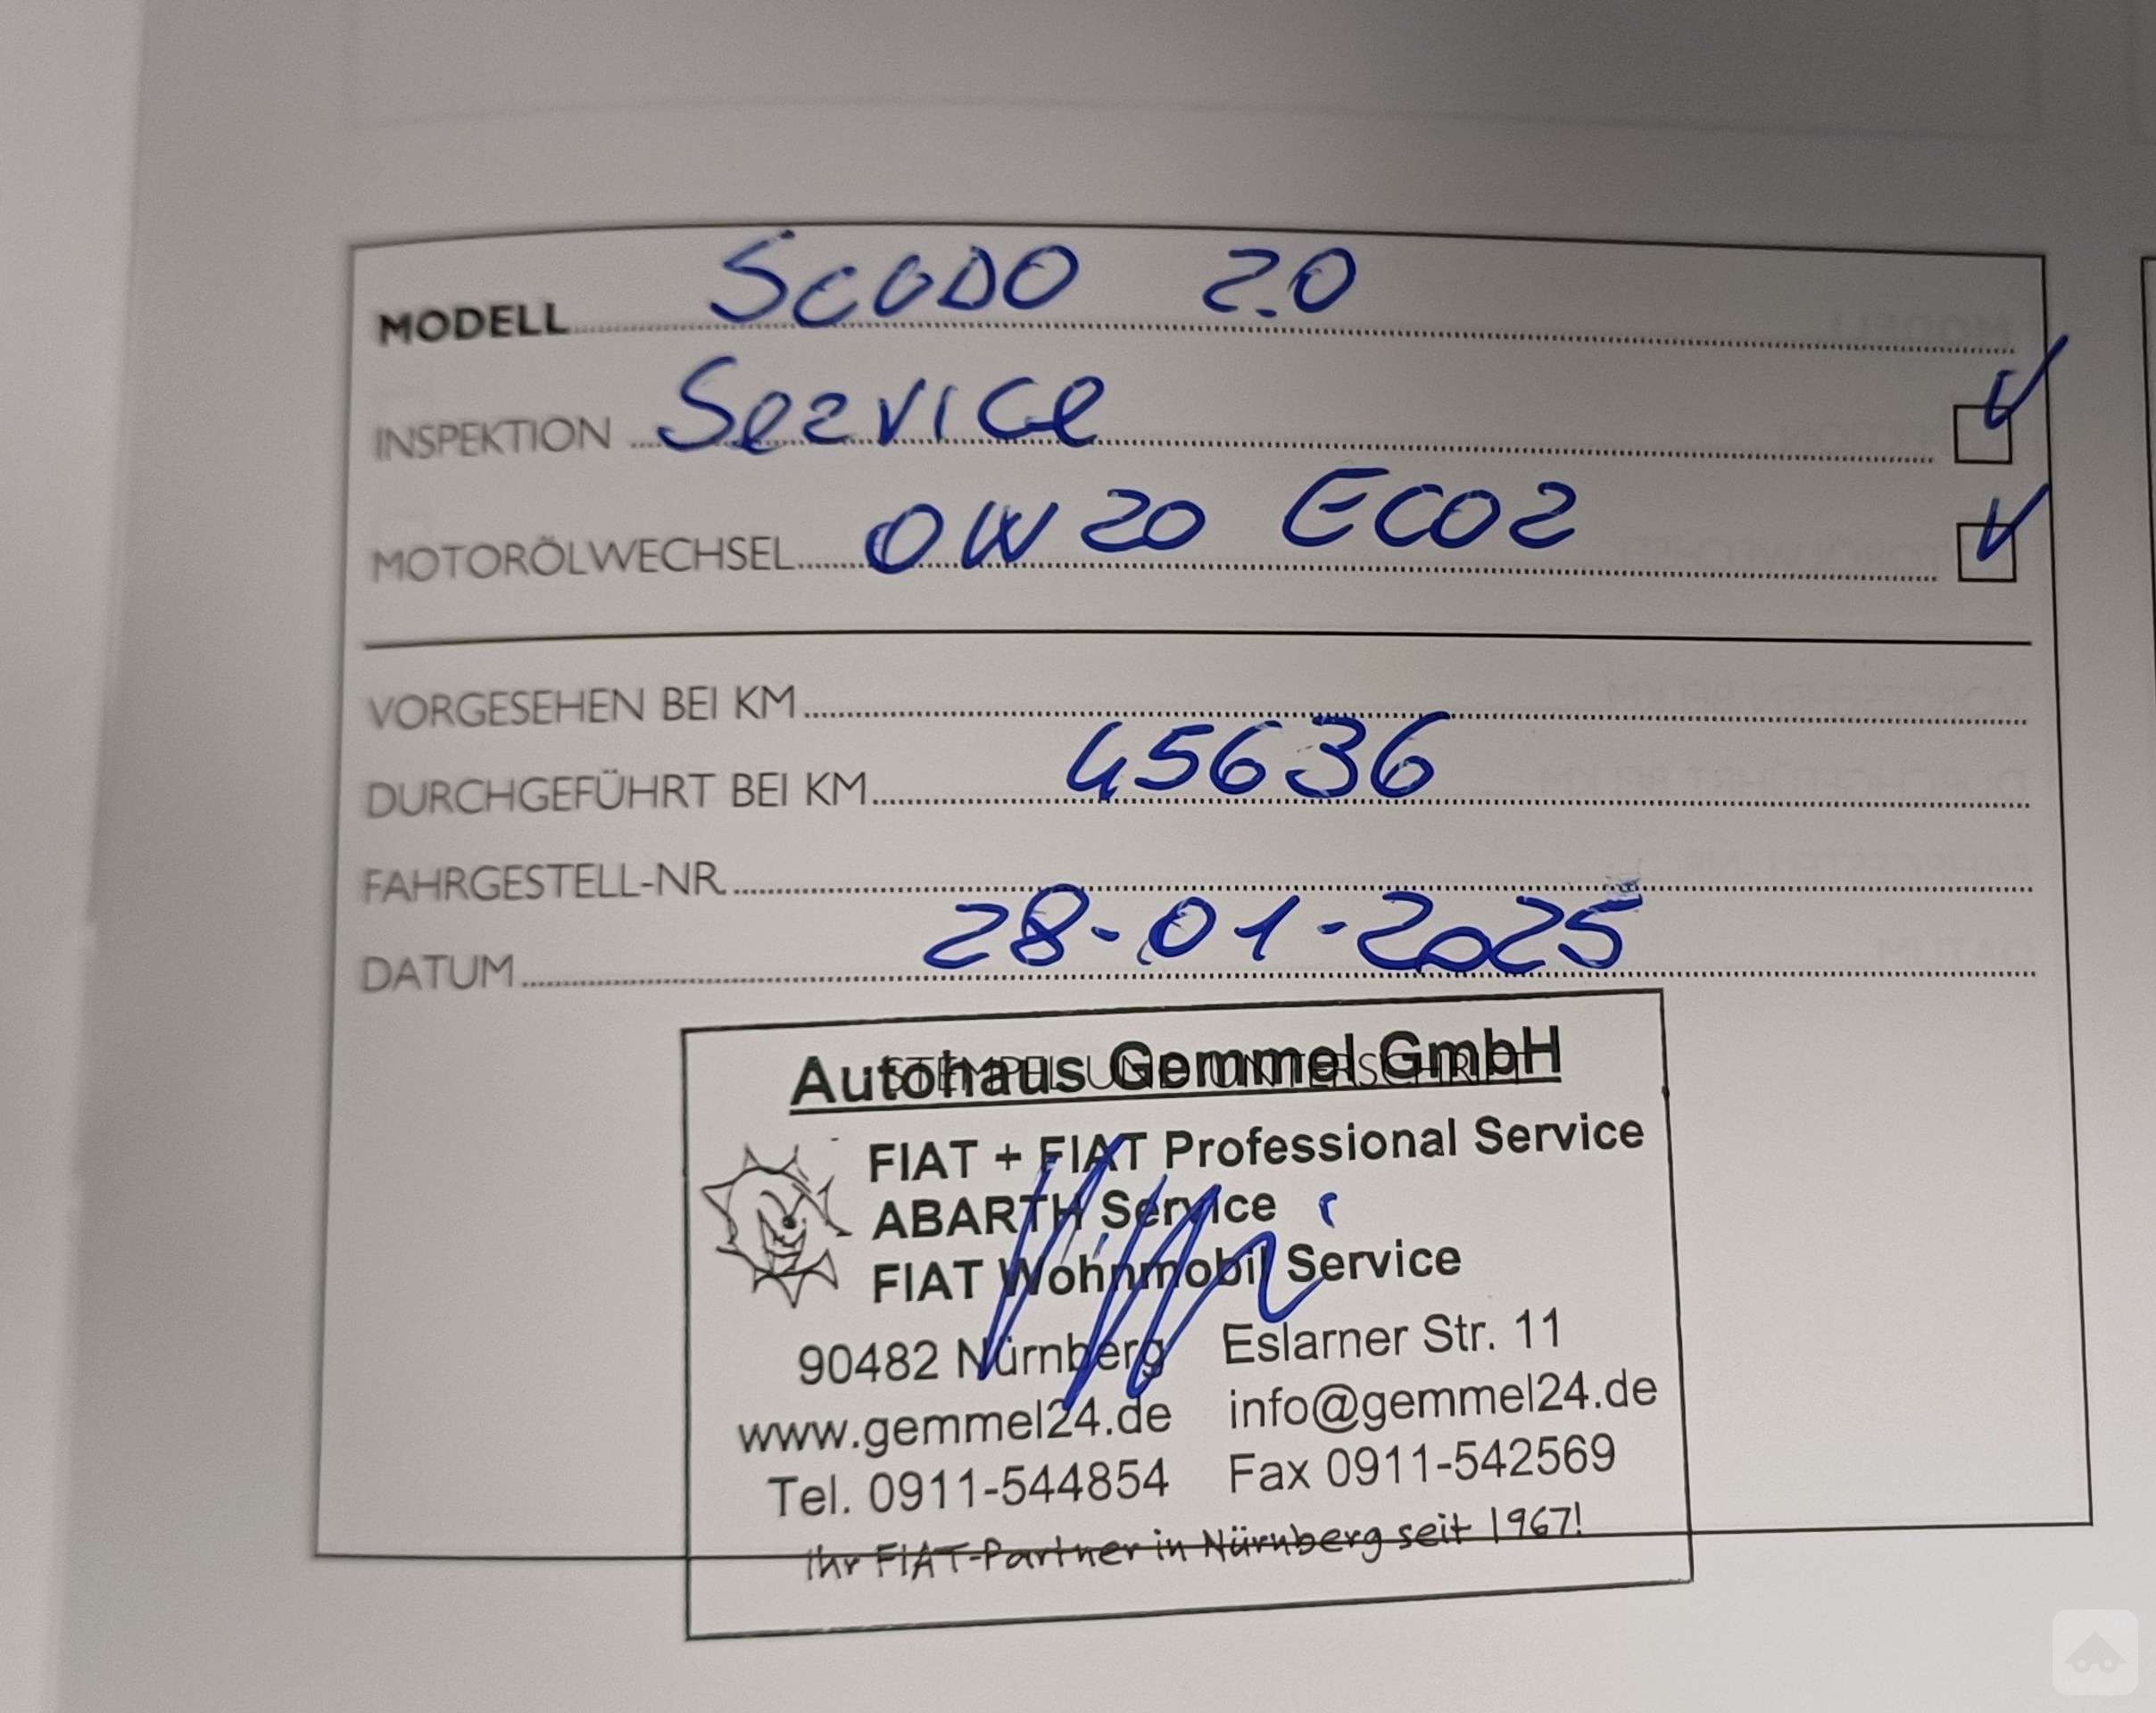 MODELL SCUDO 2.0
INSPEKTION Service ✓
MOTORÖLWECHSEL 0W20 ECO2 ✓
VORGESEHEN BEI KM
DURCHGEFÜHRT BEI KM 45636
FAHRGESTELL-NR.
DATUM 28-01-2025
STEMPEL UND UNTERSCHRIFT
Autohaus Gemmel GmbH
FIAT + FIAT Professional Service
ABARTH Service
FIAT Wohnmobil Service
90482 Nürnberg Eslarner Str. 11
www.gemmel24.de info@gemmel24.de
Tel. 0911-544854 Fax 0911-542569
Ihr FIAT-Partner in Nürnberg seit 1967!